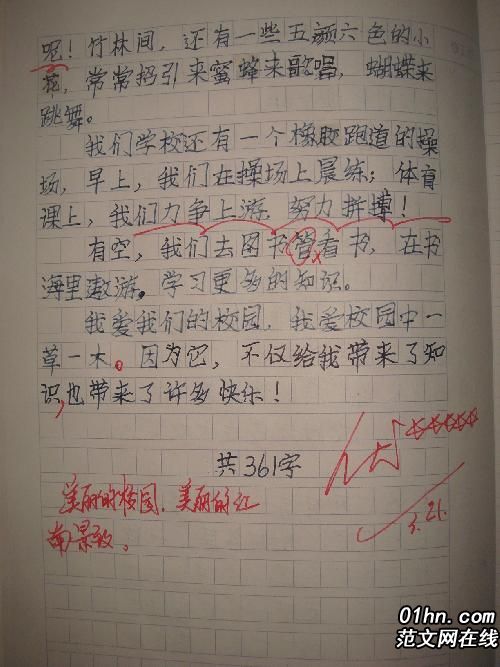 呢！竹林间，还有一些五颜六色的小
花，常常招引来蜜蜂来歌唱，蝴蝶来
跳舞。
我们学校还有一个橡胶跑道的操
场，早上，我们在操场上晨练；体育
课上，我们力争上游，努力拼搏！
有空，我们去图书管看书，在书
海里遨游。学习更多的知识。
我爱我们的校园，我爱校园中一
草一木。因为它，不仅给我带来了知
识，也带来了许多快乐！
共361字
优
3.21.
美丽的校园，美丽的红
南景致。
01hn.com
范文网在线